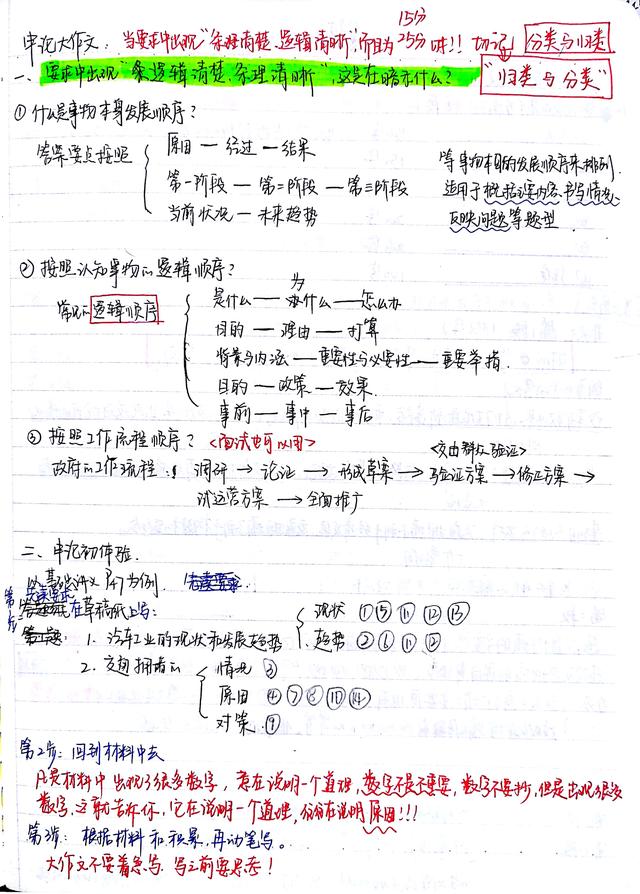 15分
申论大作文：当要求中出现"条理清楚、逻辑清晰"，而且为25分时!! 切记 分类与归类
一、要求中出现"条逻辑清楚、条理清晰"，这是在暗示什么？ "归类与分类"
① 什么是事物本身发展顺序？
答案要点按照
原因—经过—结果
第一阶段—第二阶段—第三阶段
当前状况—未来趋势
等事物本身的发展顺序来排列
适用于概括主要内容、书写情况、
反映问题等题型
② 按照认知事物的逻辑顺序？
常见的逻辑顺序
是什么—为什么—怎么办
目的—理由—打算
背景与内涵—重要性与必要性—重要举措
目的—政策—效果
事前—事中—事后
③ 按照工作流程顺序？<面试也可以用>
<交由群众验证>
政府的工作流程：调研→论证→形成草案→验证方案→修正方案→
试运营方案→全面推广
二、申论初体验
以基础讲义 为例，先读要求
第1步：先读要求
在草稿纸上写：
第一题：1. 汽车工业的现状和发展趋势
现状 ①⑤⑪⑫⑬
趋势 ②⑥⑪⑫
2. 交通拥堵的
情况 ③
原因 ④⑦⑧⑩⑭
对策 ⑨
第2步：回到材料中去
凡是材料中出现了很多数字，意在说明一个道理，数字不是不重要，数字不要抄，但是出现很多
数字，这就告诉你，它在说明一个道理，往往在说明原因!!!
第3步：根据材料和积累，再动笔写。
大作文不要着急写，写之前要思考！